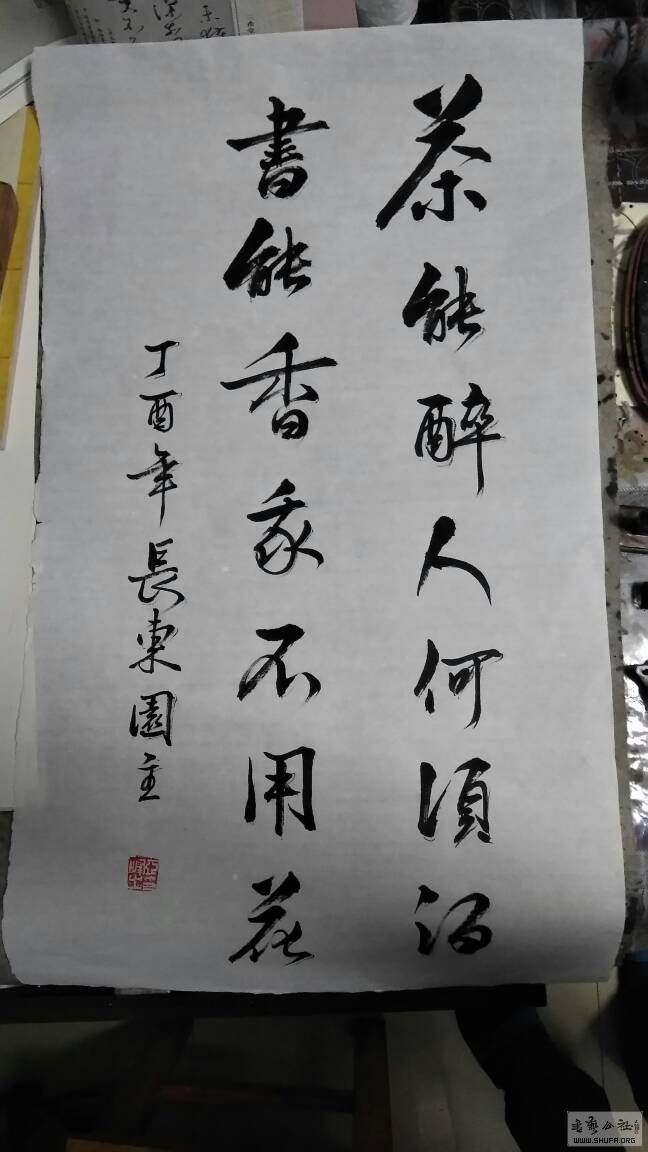 茶能醉人何須酒
書能香我不用花
丁酉年長東園主
WWW.SHUFA.ORG